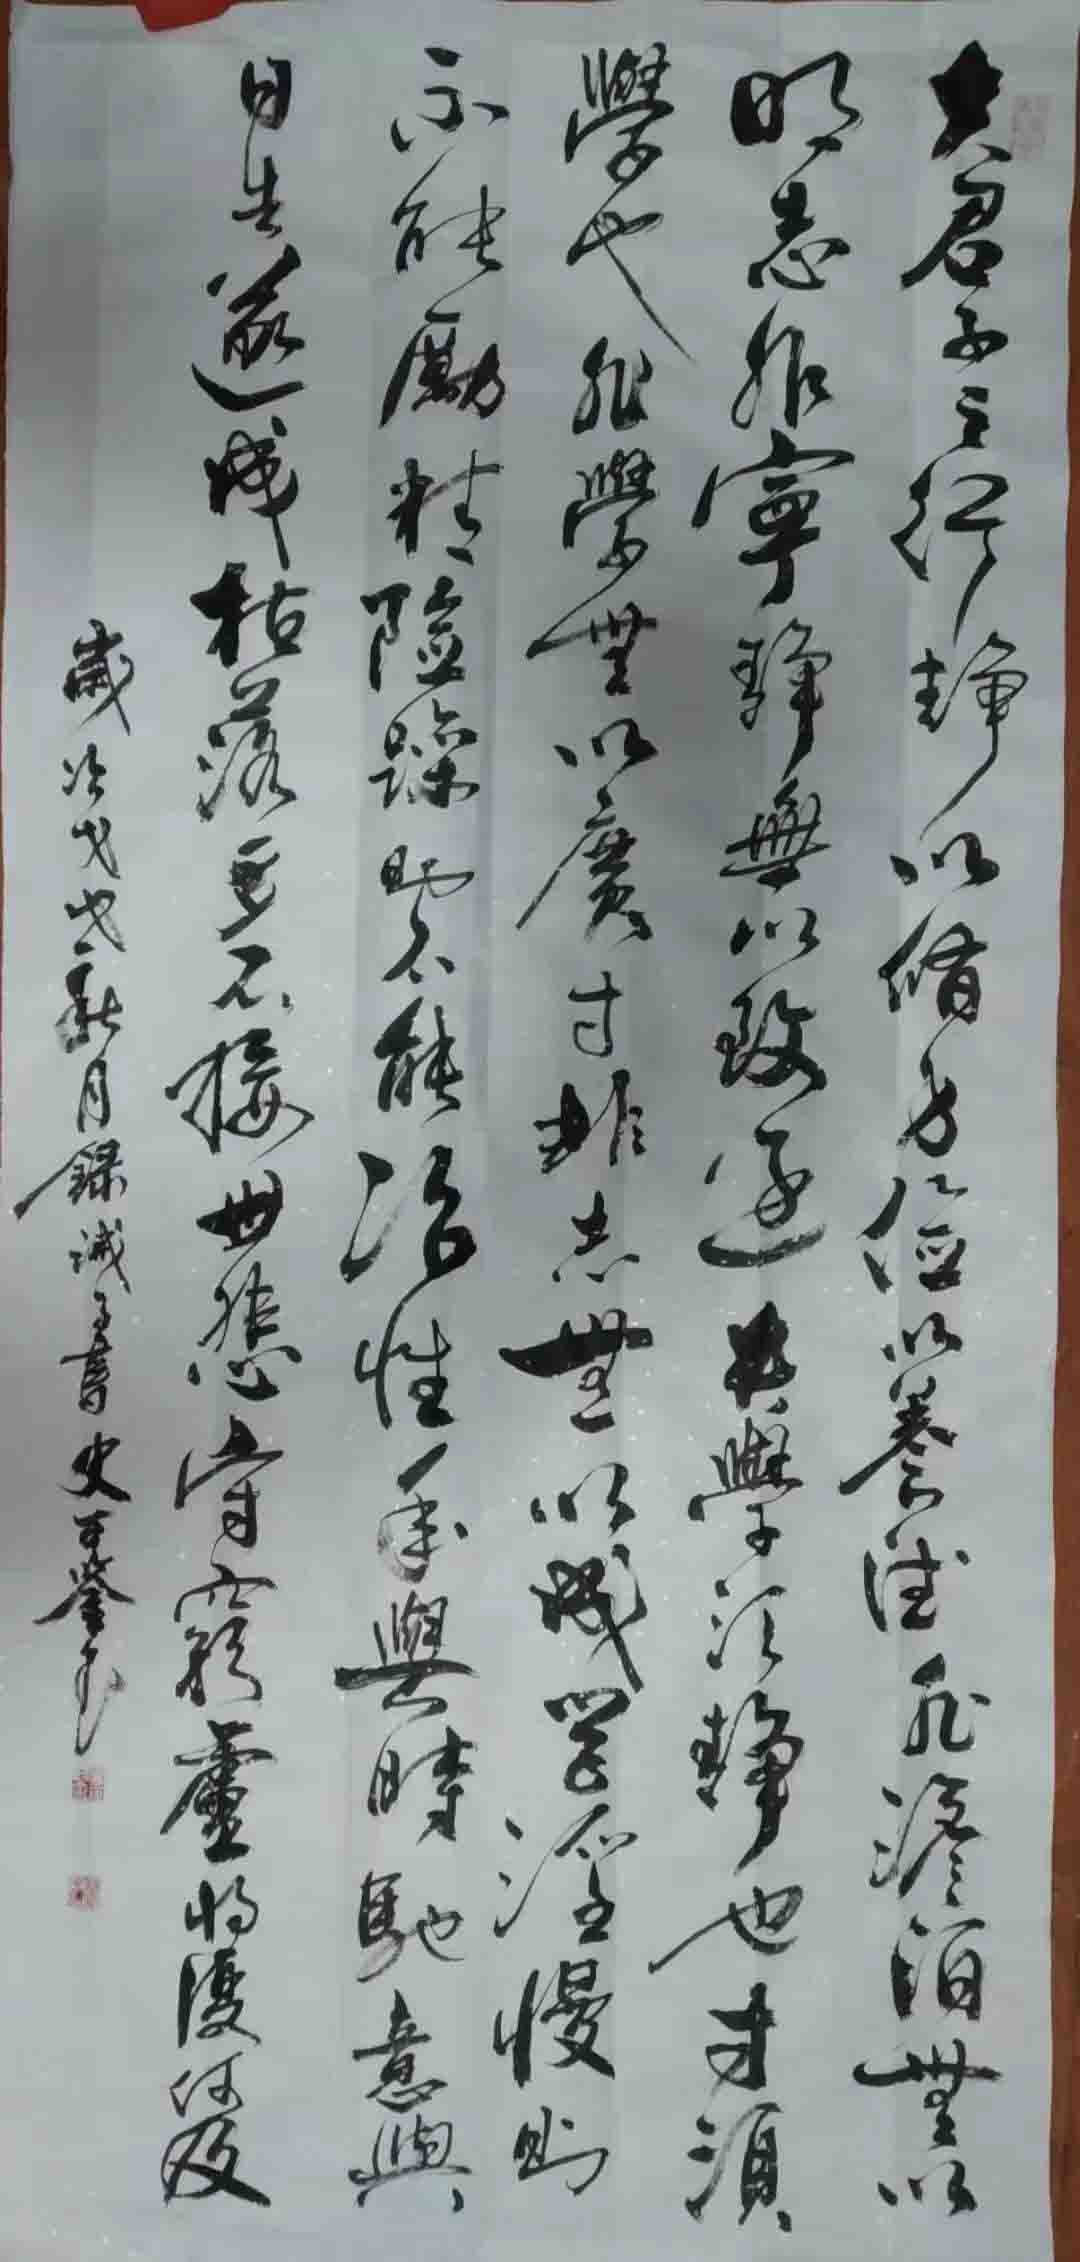 夫君子之行靜以脩身儉以養德非澹泊無以
明志非寧靜無以致遠夫學須靜也才須
學也非學無以廣才非志無以成學淫慢則
不能勵精險躁則不能治性年與時馳意與
日去遂成枯落多不接世悲守窮廬將復何及
歲次戊戌新月錄誡子書史可鑒書